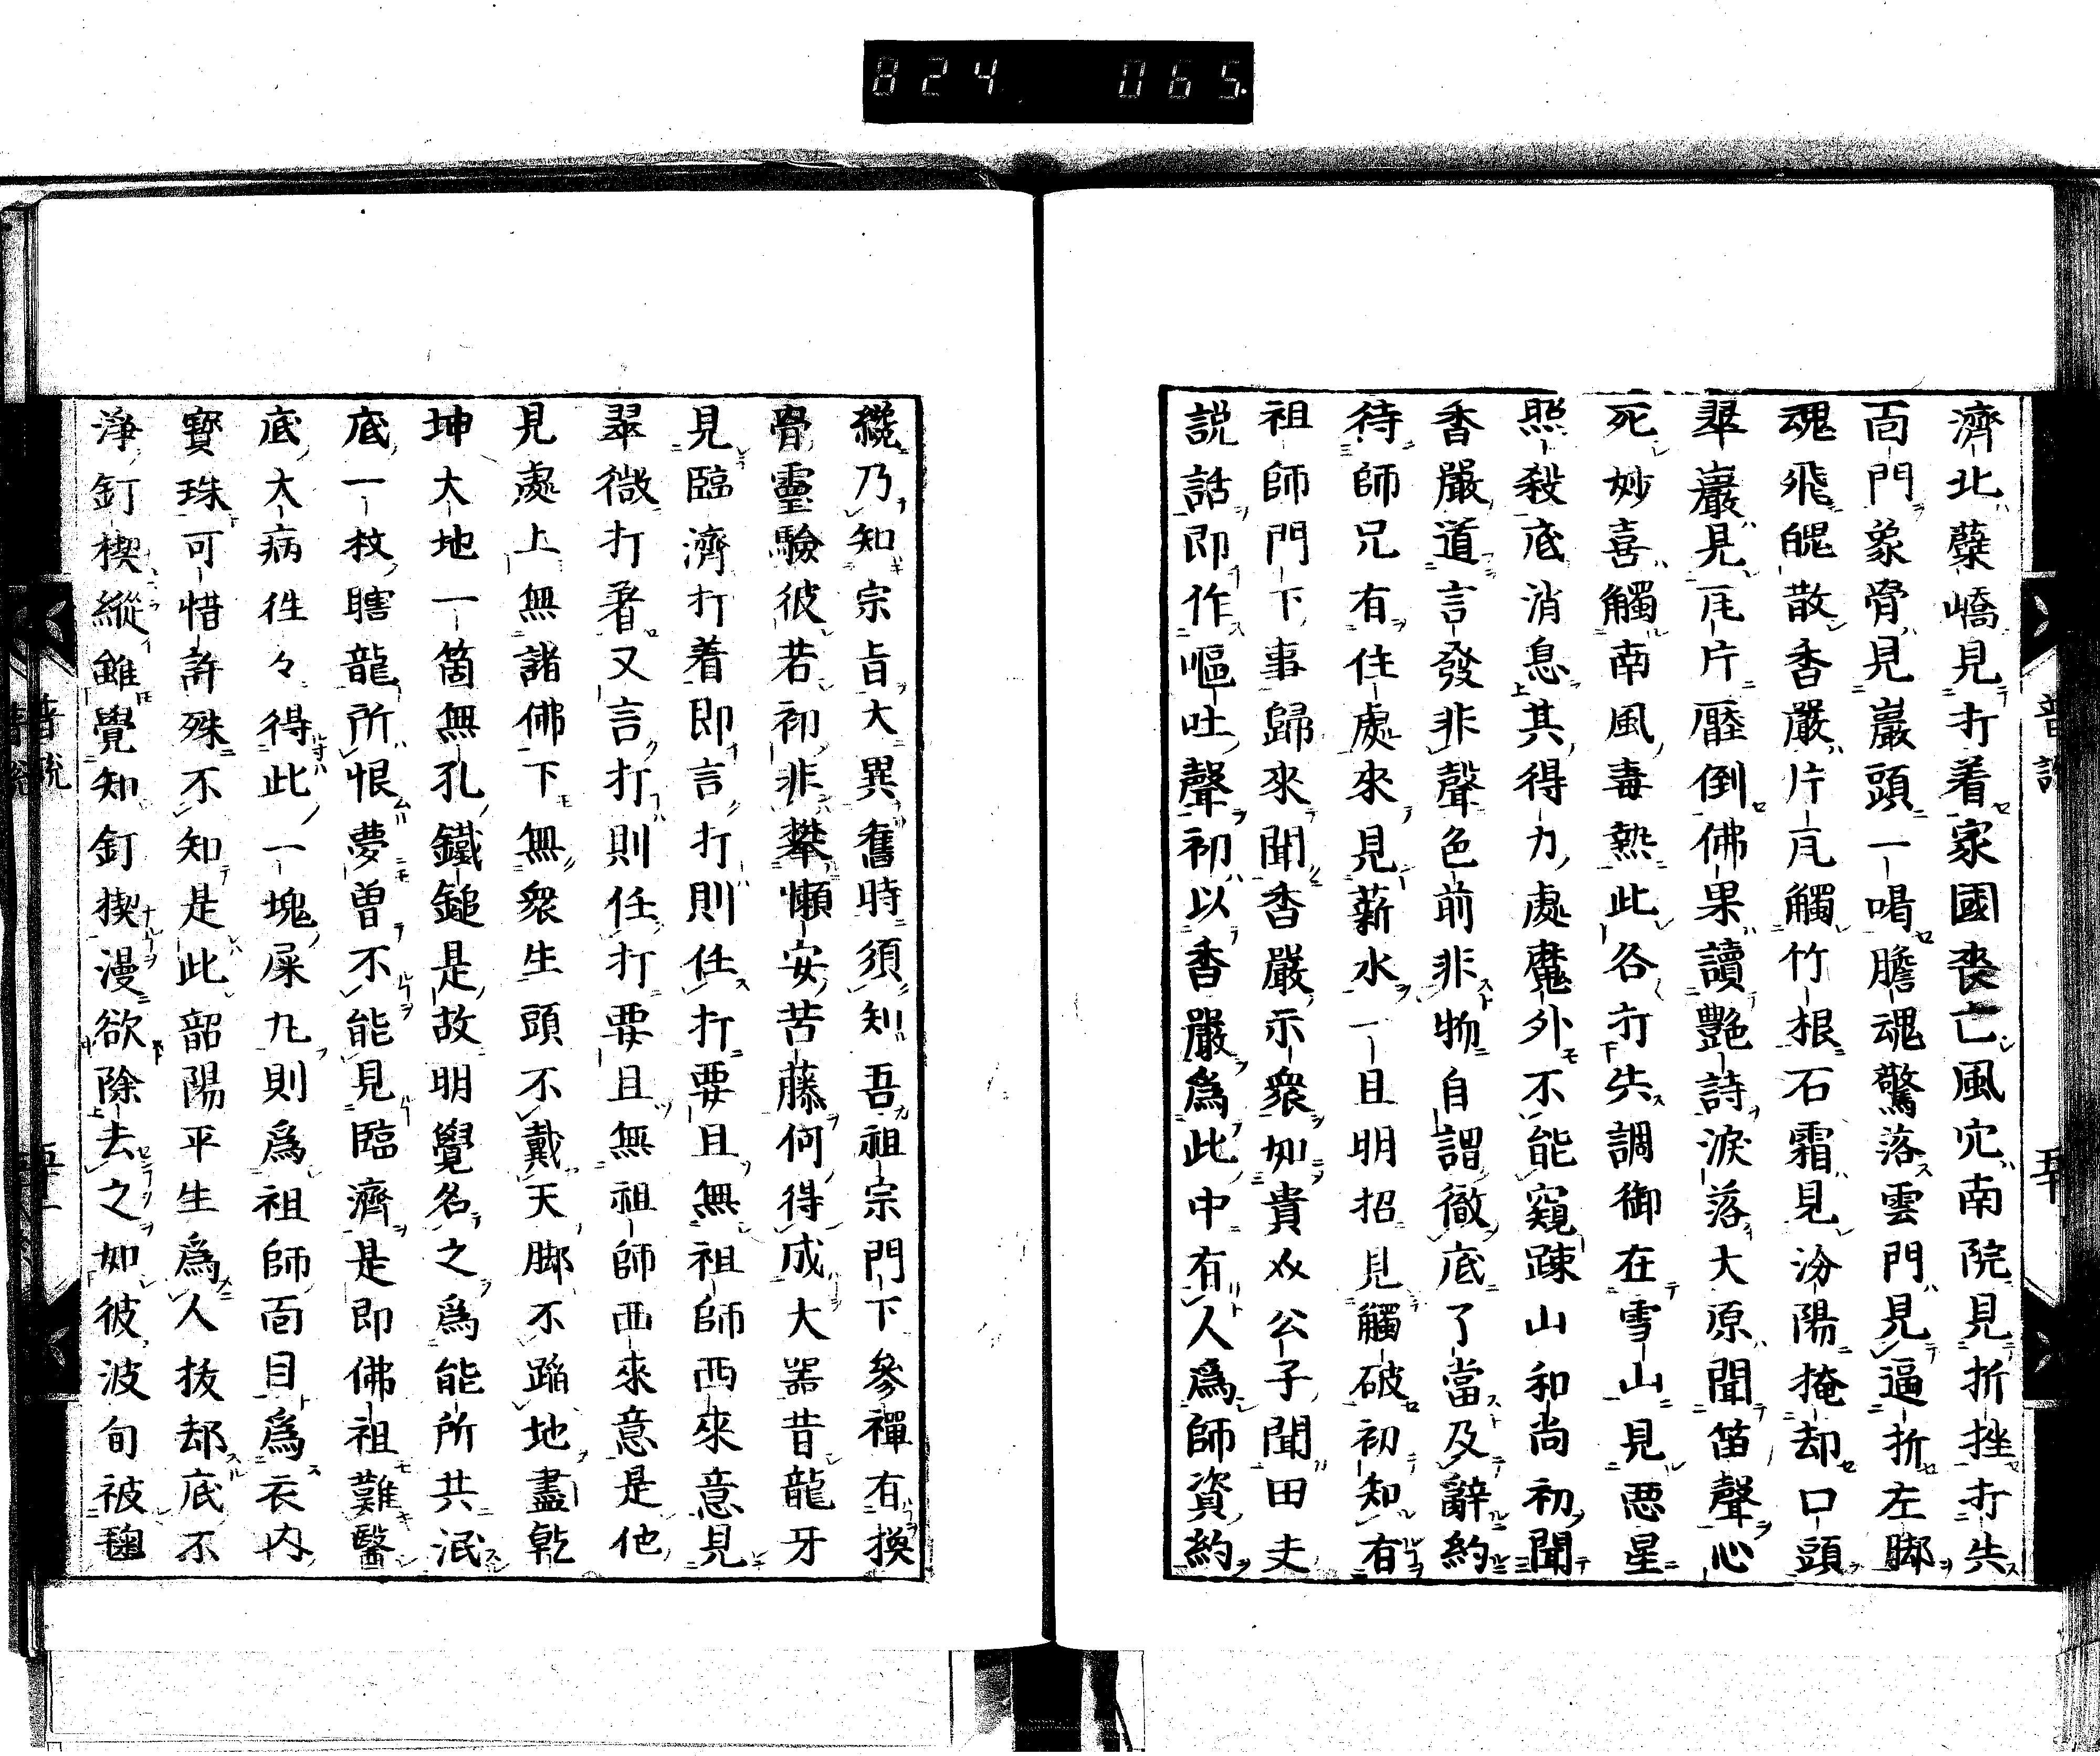 824 065
濟北蘗嶠見打着家國喪亡風穴南院見折挫打失
靣門象骨見巖頭一喝膽魂驚落雲門見逼折左脚
魂飛魄散香嚴片瓦觸竹根石霜見汾陽掩却口頭
翠巖見瓦片壓倒佛果讀艷詩淚落大原聞笛聲心
死妙喜觸南風毒熱此各打失調御在雪山見悪星
照殺底消息其得力處魔外不能窺踈山和尚初聞
香嚴道言發非聲色前非物自謂徹底了當及辭約
待師兄有住處來見薪水一旦明招見觸破初知有
祖師門下事歸來聞香嚴示衆如貴公子聞田夫
説話即作嘔吐聲初以香嚴爲此中有人爲師資約
纔乃知宗旨大異舊時須知吾祖宗門下參禪有換
骨靈驗彼若初非攀懶安苦藤何得成大器昔龍牙
見臨濟打着即言打則任打要且無祖師西來意見
翠微打着又言打則任打要且無祖師西來意是他
見處上無諸佛下無衆生頭不戴天脚不蹈地盡乾
坤大地一箇無孔鐵鎚是故明覺名之爲能所共泯
底一枚瞎龍所恨夢曽不能見臨濟是即佛祖難醫
底大病徃々得此一塊屎九則爲祖師靣目爲衣内
寳珠可惜許殊不知是此韶陽平生爲人抜却底不
淨釘楔縱雖覺知釘楔漫欲除去之如彼波旬被